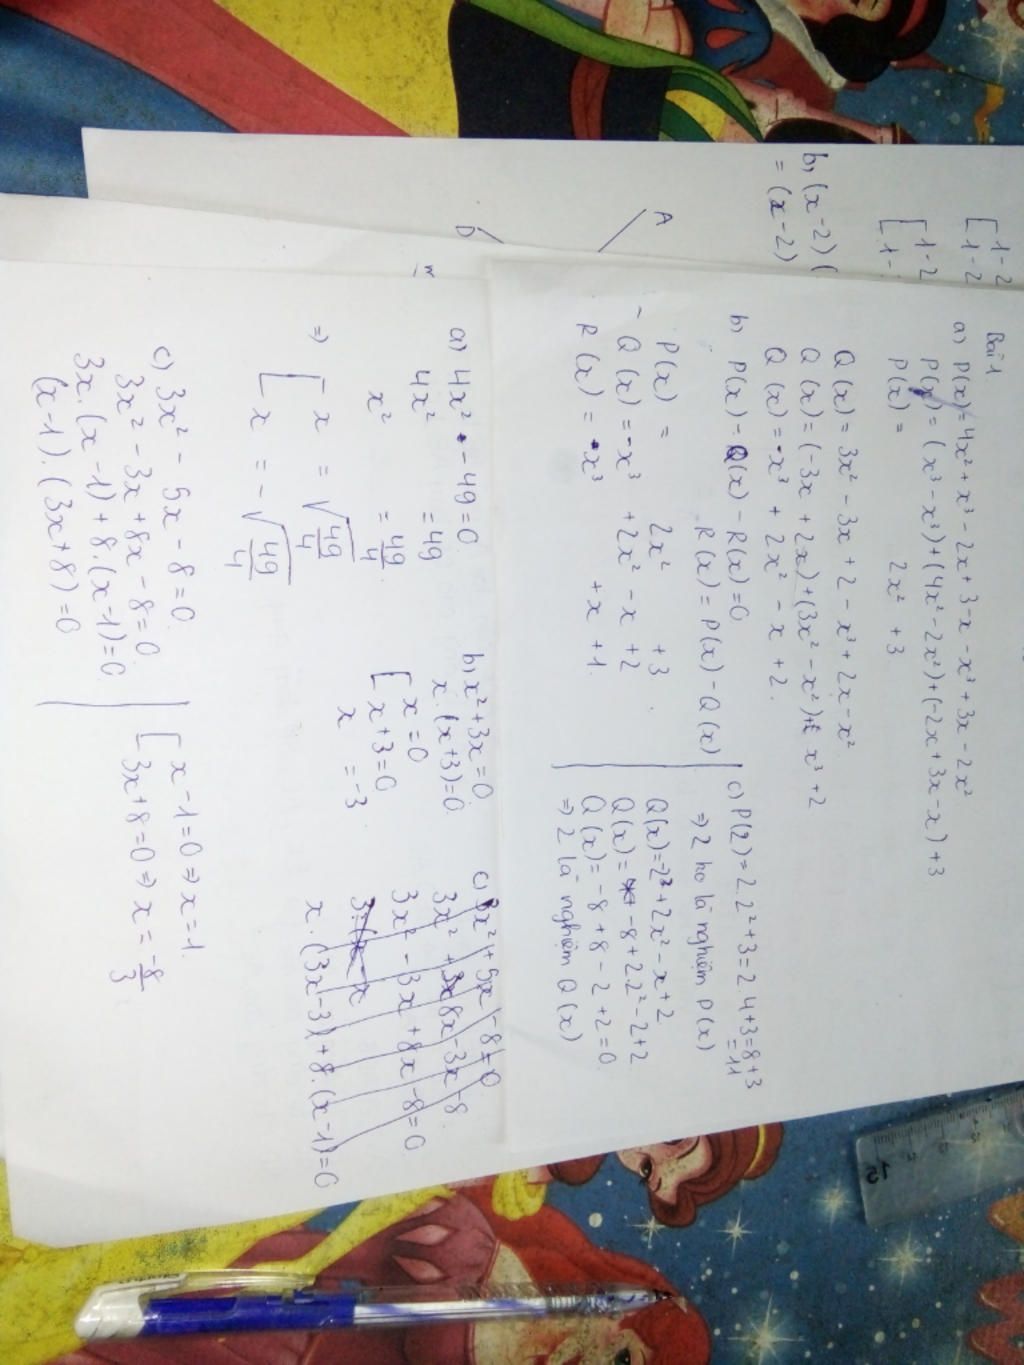 Bài 1.
a) P(x) = 4x² + x³ - 2x + 3 - x - x³ + 3x - 2x²
P(x) = (x³ - x³) + (4x² - 2x²) + (-2x + 3x - x) + 3
P(x) = 2x² + 3
Q(x) = 3x² - 3x + 2 - x³ + 2x - x²
Q(x) = (-3x + 2x) + (3x² - x²) + x³ + 2
Q(x) = -x³ + 2x² - x + 2.
b) P(x) - Q(x) - R(x) = 0
R(x) = P(x) - Q(x)
P(x) = 2x² + 3
- Q(x) = -x³ + 2x² - x + 2
R(x) = x³ + x + 1.
c) P(2) = 2.2² + 3 = 2.4 + 3 = 8 + 3
= 11
=> 2 ko là nghiệm P(x)
Q(x) = -2³ + 2x² - x + 2
Q(x) = -8 + 2.2² - 2 + 2
Q(x) = -8 + 8 - 2 + 2 = 0.
=> 2 là nghiệm Q(x)
a) 4x² - 49 = 0
4x² = 49
x² = 49/4
=> [ x = √49/4
[ x = -√49/4
b) x² + 3x = 0
x.(x + 3) = 0
[ x = 0
[ x + 3 = 0
x = -3
c) 3x² + 5x - 8 = 0
3x² + 8x - 3x - 8
3x² - 3x + 8x - 8 = 0
x.(3x - 3) + 8.(x - 1) = 0
c) 3x² - 5x - 8 = 0
3x² - 3x + 8x - 8 = 0
3x.(x - 1) + 8.(x - 1) = 0
(x - 1).(3x + 8) = 0
[ x - 1 = 0 => x = 1.
3x + 8 = 0 => x = -8/3
[ 1 - 2
[ 1 - 2
[ 1 - 2
[ 1 -
b) (x - 2) (
= (x - 2)
A
D
m
15